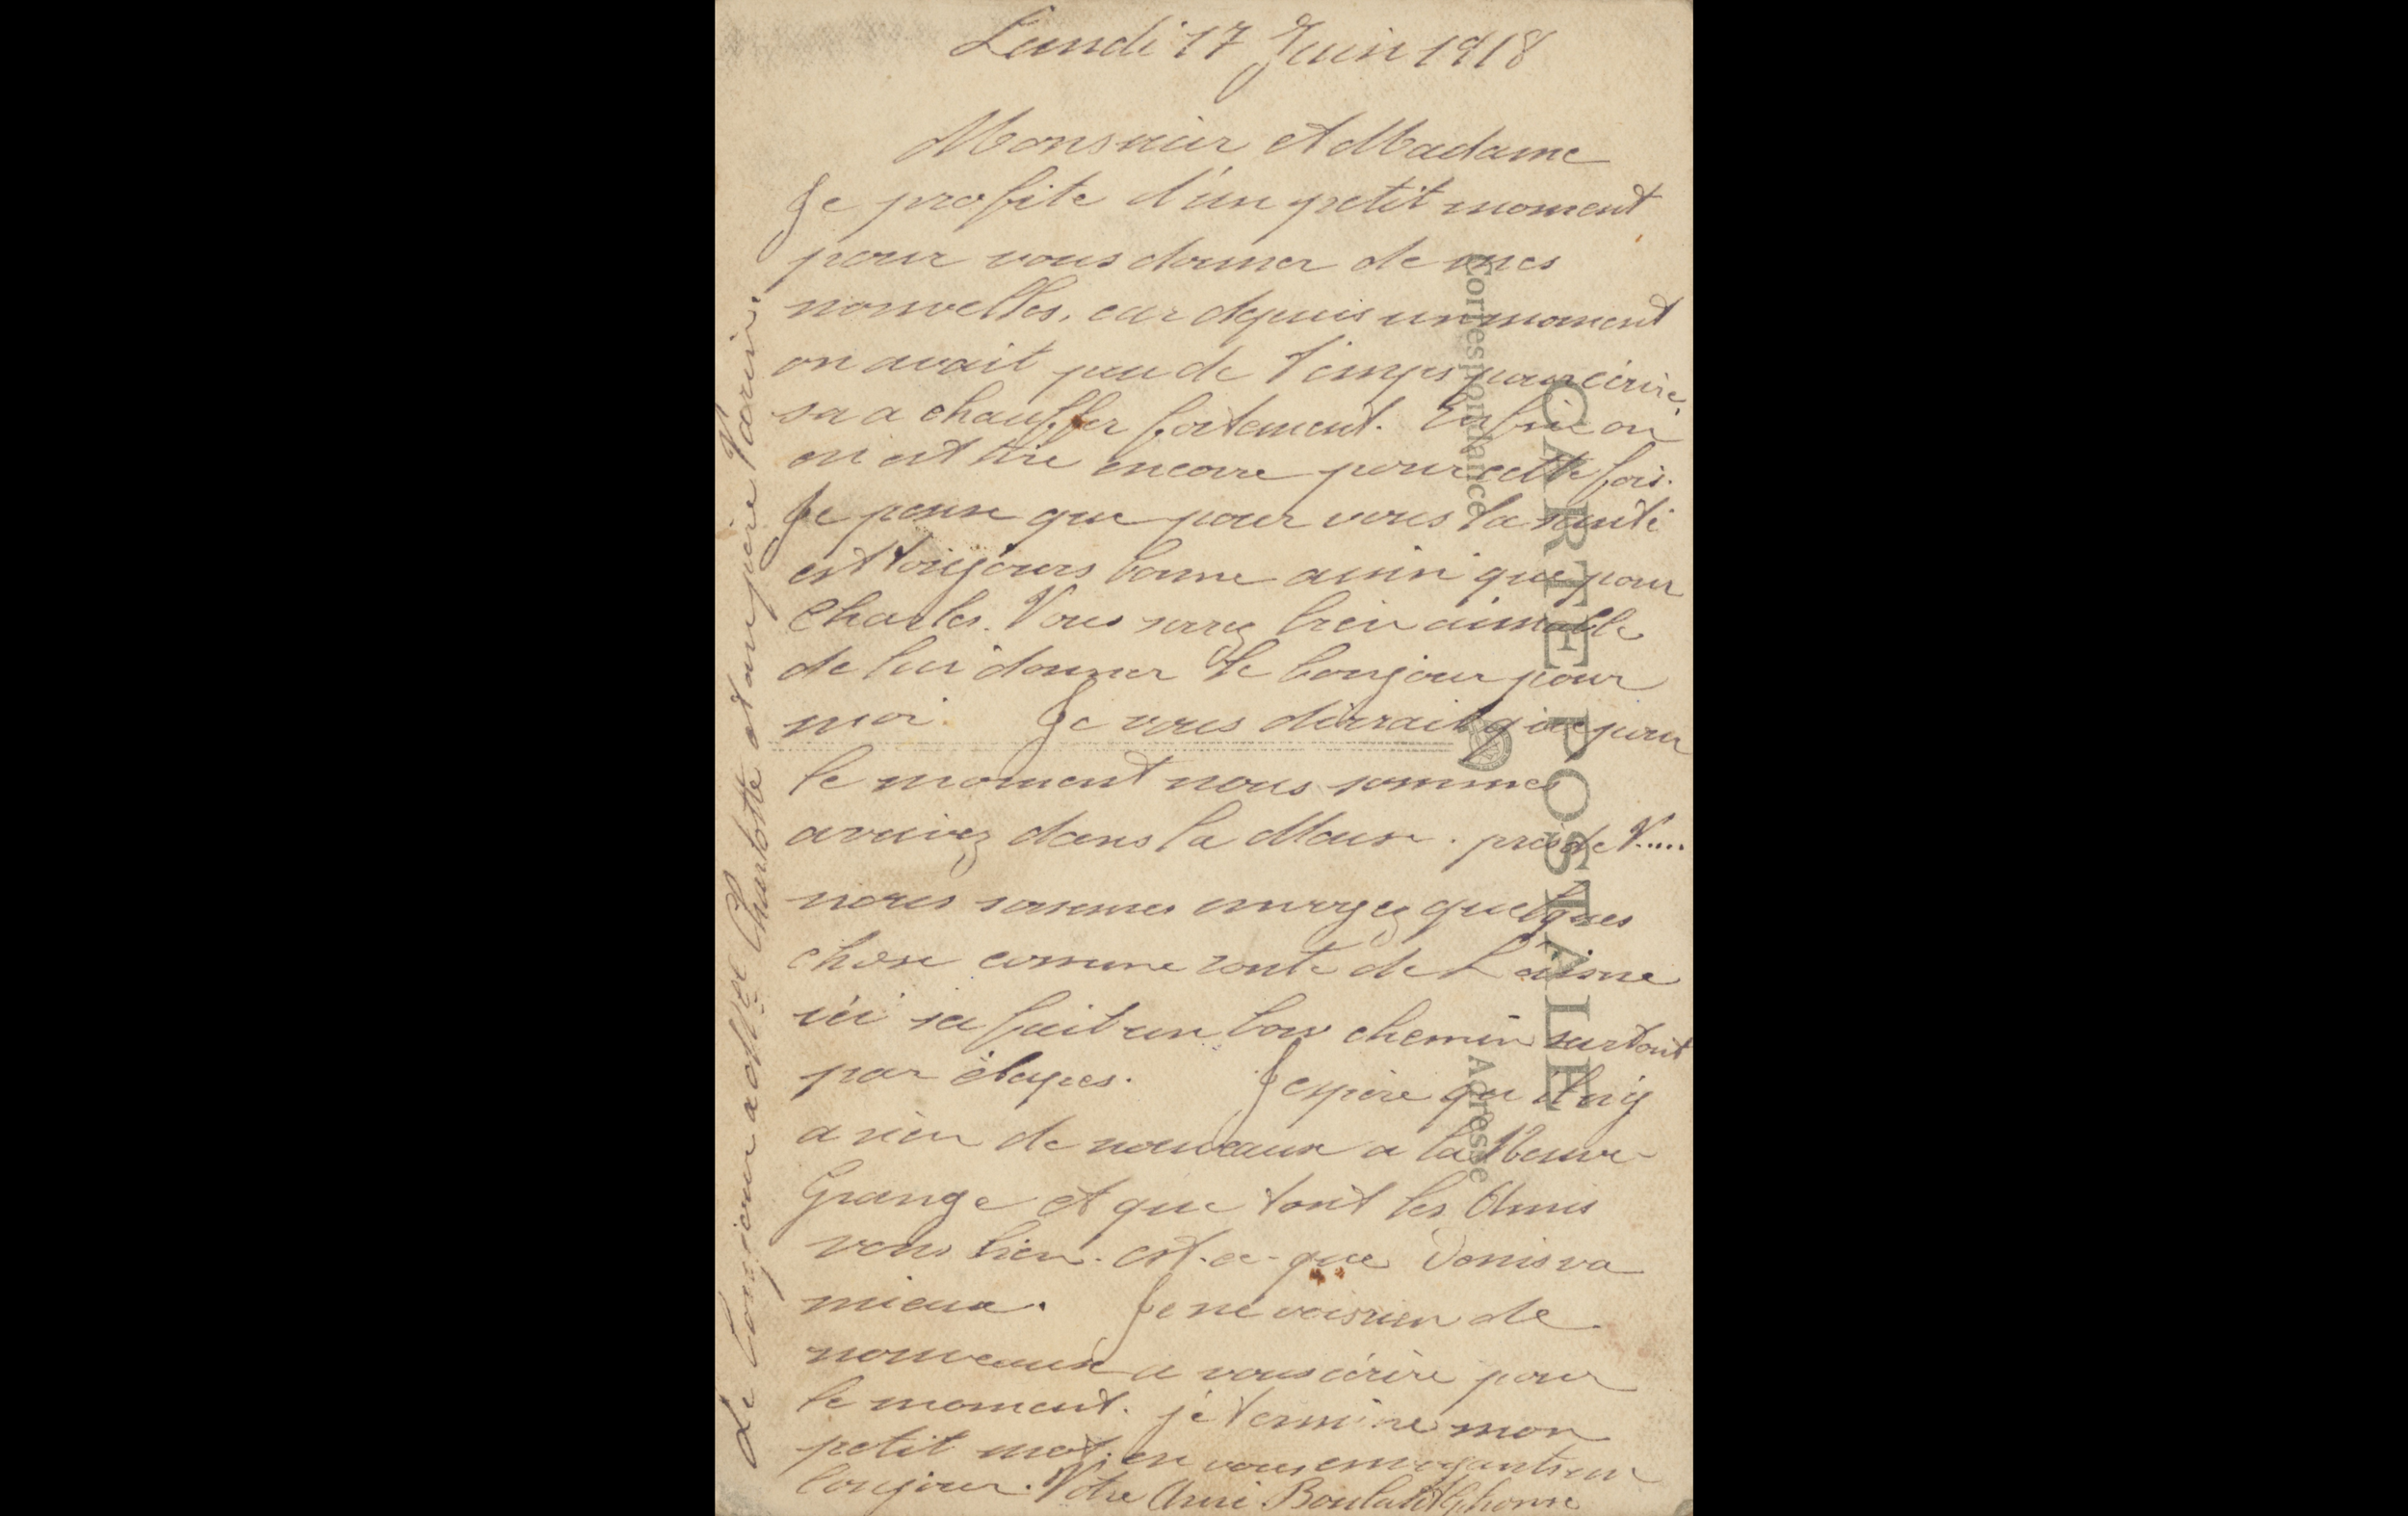 Lundi 17 Juin 1918
Monsieur et Madame
Je profite d'un petit moment
pour vous donner de mes
nouvelles, car depuis un moment
on avait peu de temps pour écrire,
sa a chauffer fortement. Enfin on
on est tiré encore pour cette fois.
Je pense que pour vous la santé
est toujours bonne ainsi que pour
Charles. Vous serez bien aimable
de lui donner le bonjour pour
moi. Je vous dirrait que pour
le moment nous sommes
arrivez dans la Meuse. près de V.....
nous sommes envoyez quelques
chose comme route de L'aisne
ici sa fait un bow chemin surtout
par étapes. J'espère qu'il n'y
a rien de nouveaux a la Neuve-
Grange et que tout les Amis
vons bien. est-ce-que Denis va
mieux. Je ne vois rien de
nouveaux a vous écrire pour
le moment. je termine mon
petit mot, en vous envoyant un
bonjour. Votre Ami Boulard Alphonse
Le bonjour a Mlle Charlotte et au père Varin.
CARTE POSTALE
Correspondance
Adresse